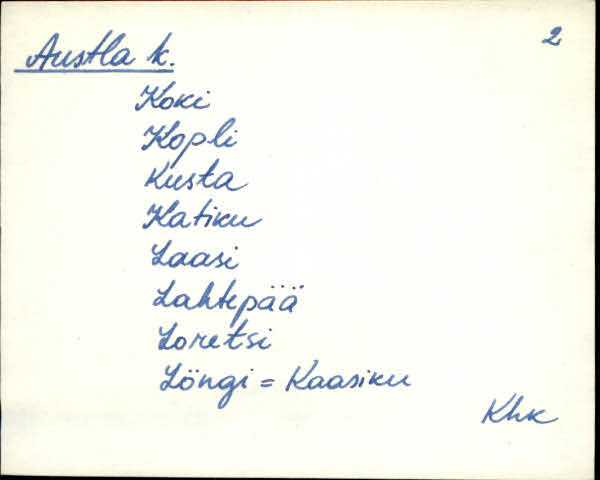 2
Austla k.
Koki
Kopli
Kusta
Katiku
Laasi
Lahtepää
Loretsi
Löngi = Kaasiku
Khk